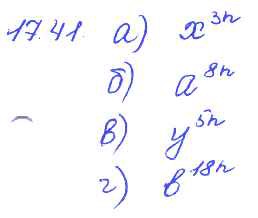 17.41. а) x^{3n}
б) a^{8n}
в) y^{5n}
г) b^{18n}